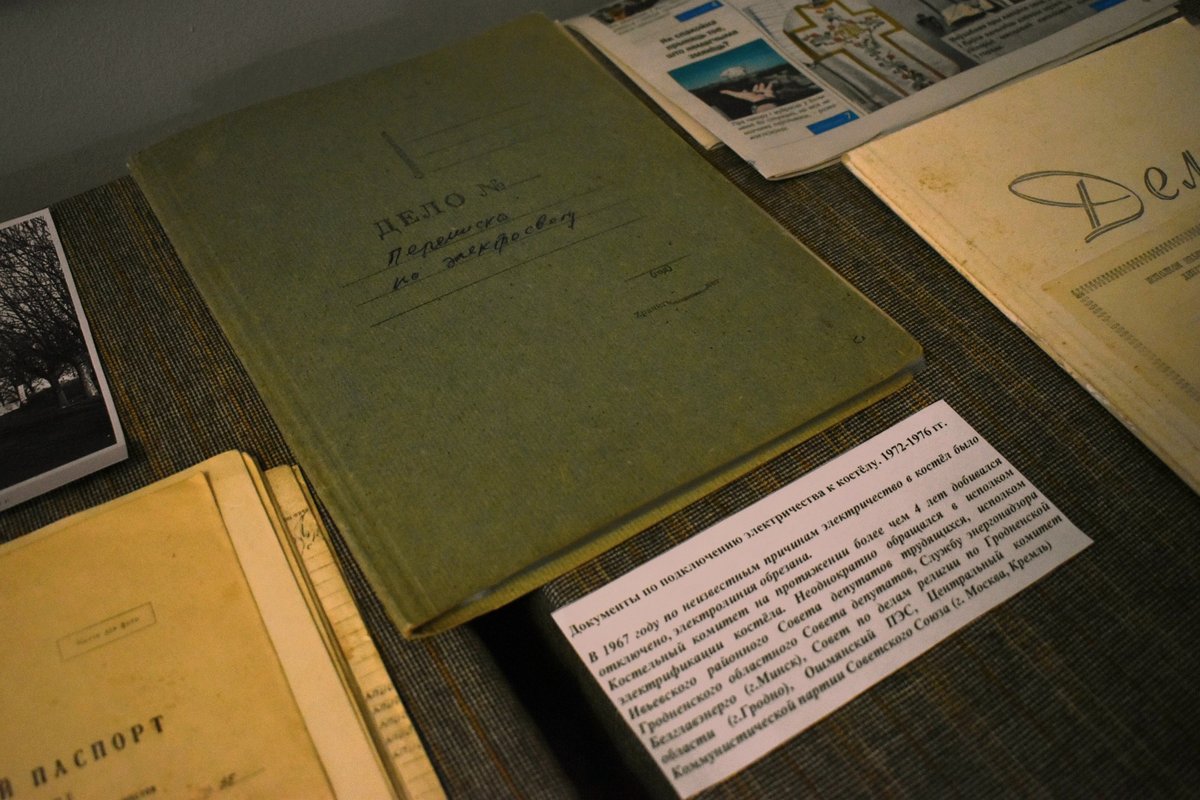 Ці спакойна
ДЕЛО №
Переписка
по электросвету
Дел
Документы по подключению электричества к костёлу. 1972-1976 гг.
В 1967 году по неизвестным причинам электричество в костёл было
отключено, электролиния обрезана.
Костельный комитет на протяжении более чем 4 лет добивался
электрификации костёла. Неоднократно обращался в исполком
Ивьевского районного Совета депутатов трудящихся, исполком
Гродненского областного Совета депутатов, Службу энергонадзора
Белглавэнерго (г.Минск), Совет по делам религии по Гродненской
области (г.Гродно), Ошмянский ПЭС, Центральный комитет
Коммунистической партии Советского Союза (г. Москва, Кремль)
Место для фото
Й ПАСПОРТ
7